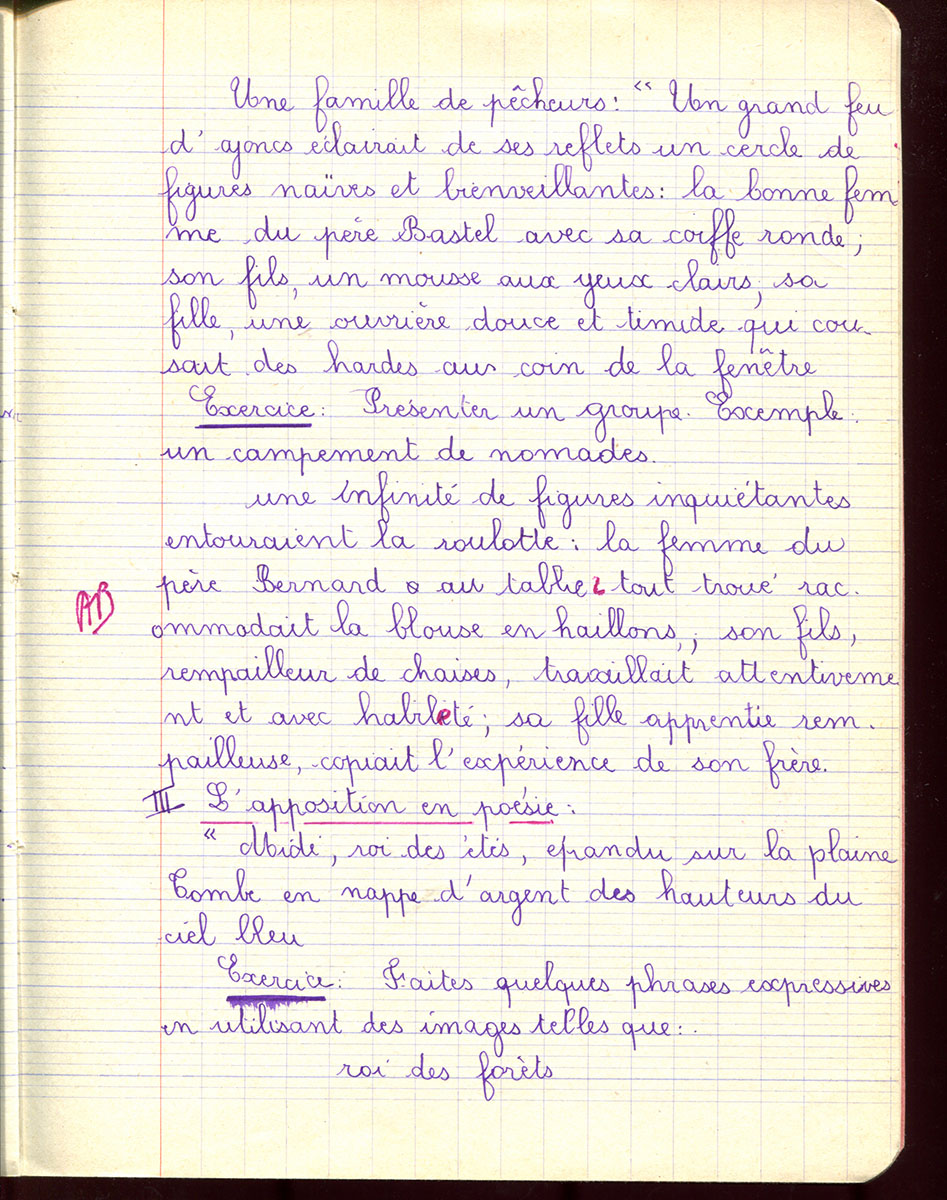 Une famille de pêcheurs: “ Un grand feu
d'ajoncs éclairait de ses reflets un cercle de
figures naïves et bienveillantes: la bonne fem
me du père Bastel avec sa coiffe ronde;
son fils, un mousse aux yeux clairs, sa
fille, une ouvrière douce et timide qui cou-
sait des hardes au coin de la fenêtre
Exercice: Présenter un groupe. Exemple.
un campement de nomades.
une infinité de figures inquiétantes
entouraient la roulotte: la femme du
père Bernard au tablier tout troué rac.
AB
ommodait la blouse en haillons,; son fils,
rempailleur de chaises, travaillait attentiveme
nt et avec habileté; sa fille apprentie rem.
pailleuse, copiait l'expérience de son frère.
III L'apposition en poésie:
“ Midi, roi des étés, épandu sur la plaine
Tombe en nappe d'argent des hauteurs du
ciel bleu
Exercice: Faites quelques phrases expressives
en utilisant des images telles que:.
roi des forêts